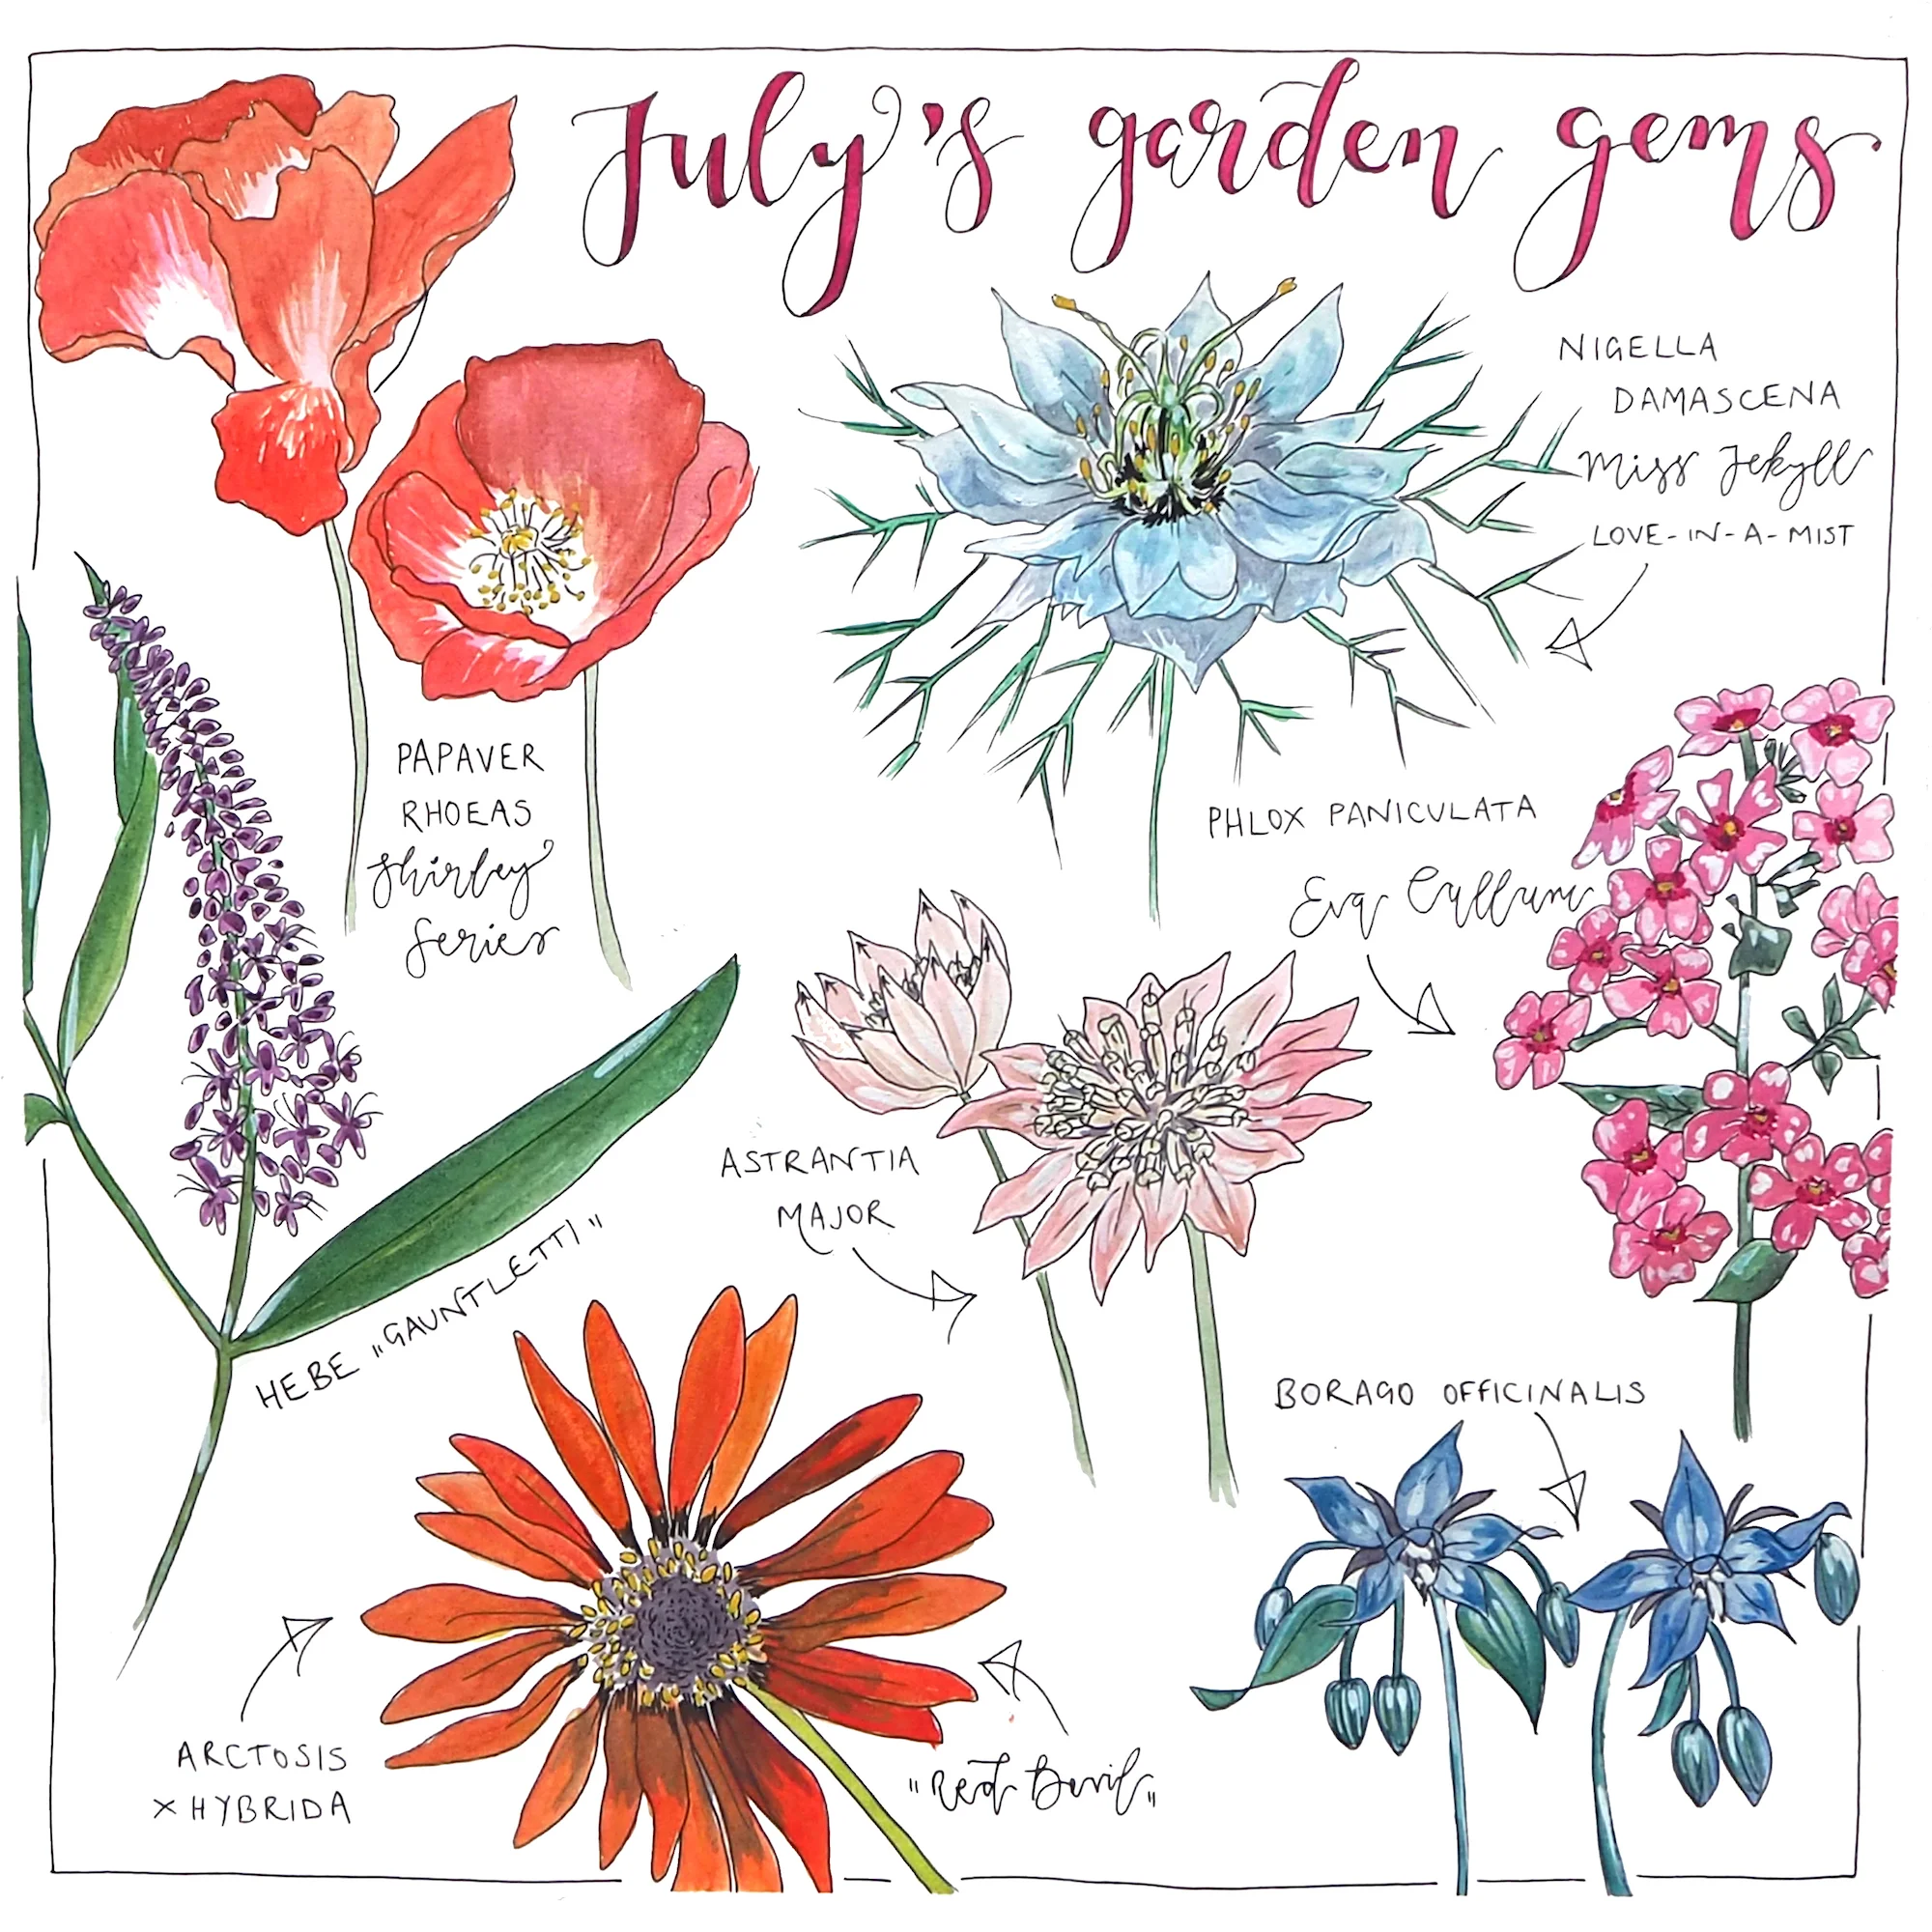 July's garden gems
NIGELLA
DAMASCENA
Miss Jekyll
LOVE-IN-A-MIST
PAPAVER
RHOEAS
Shirley
Series
PHLOX PANICULATA
Eva Cullum
ASTRANTIA
MAJOR
HEBE "GAUNTLETTI"
BORAGO OFFICINALIS
ARCTOSIS
X HYBRIDA
"Red Devil"